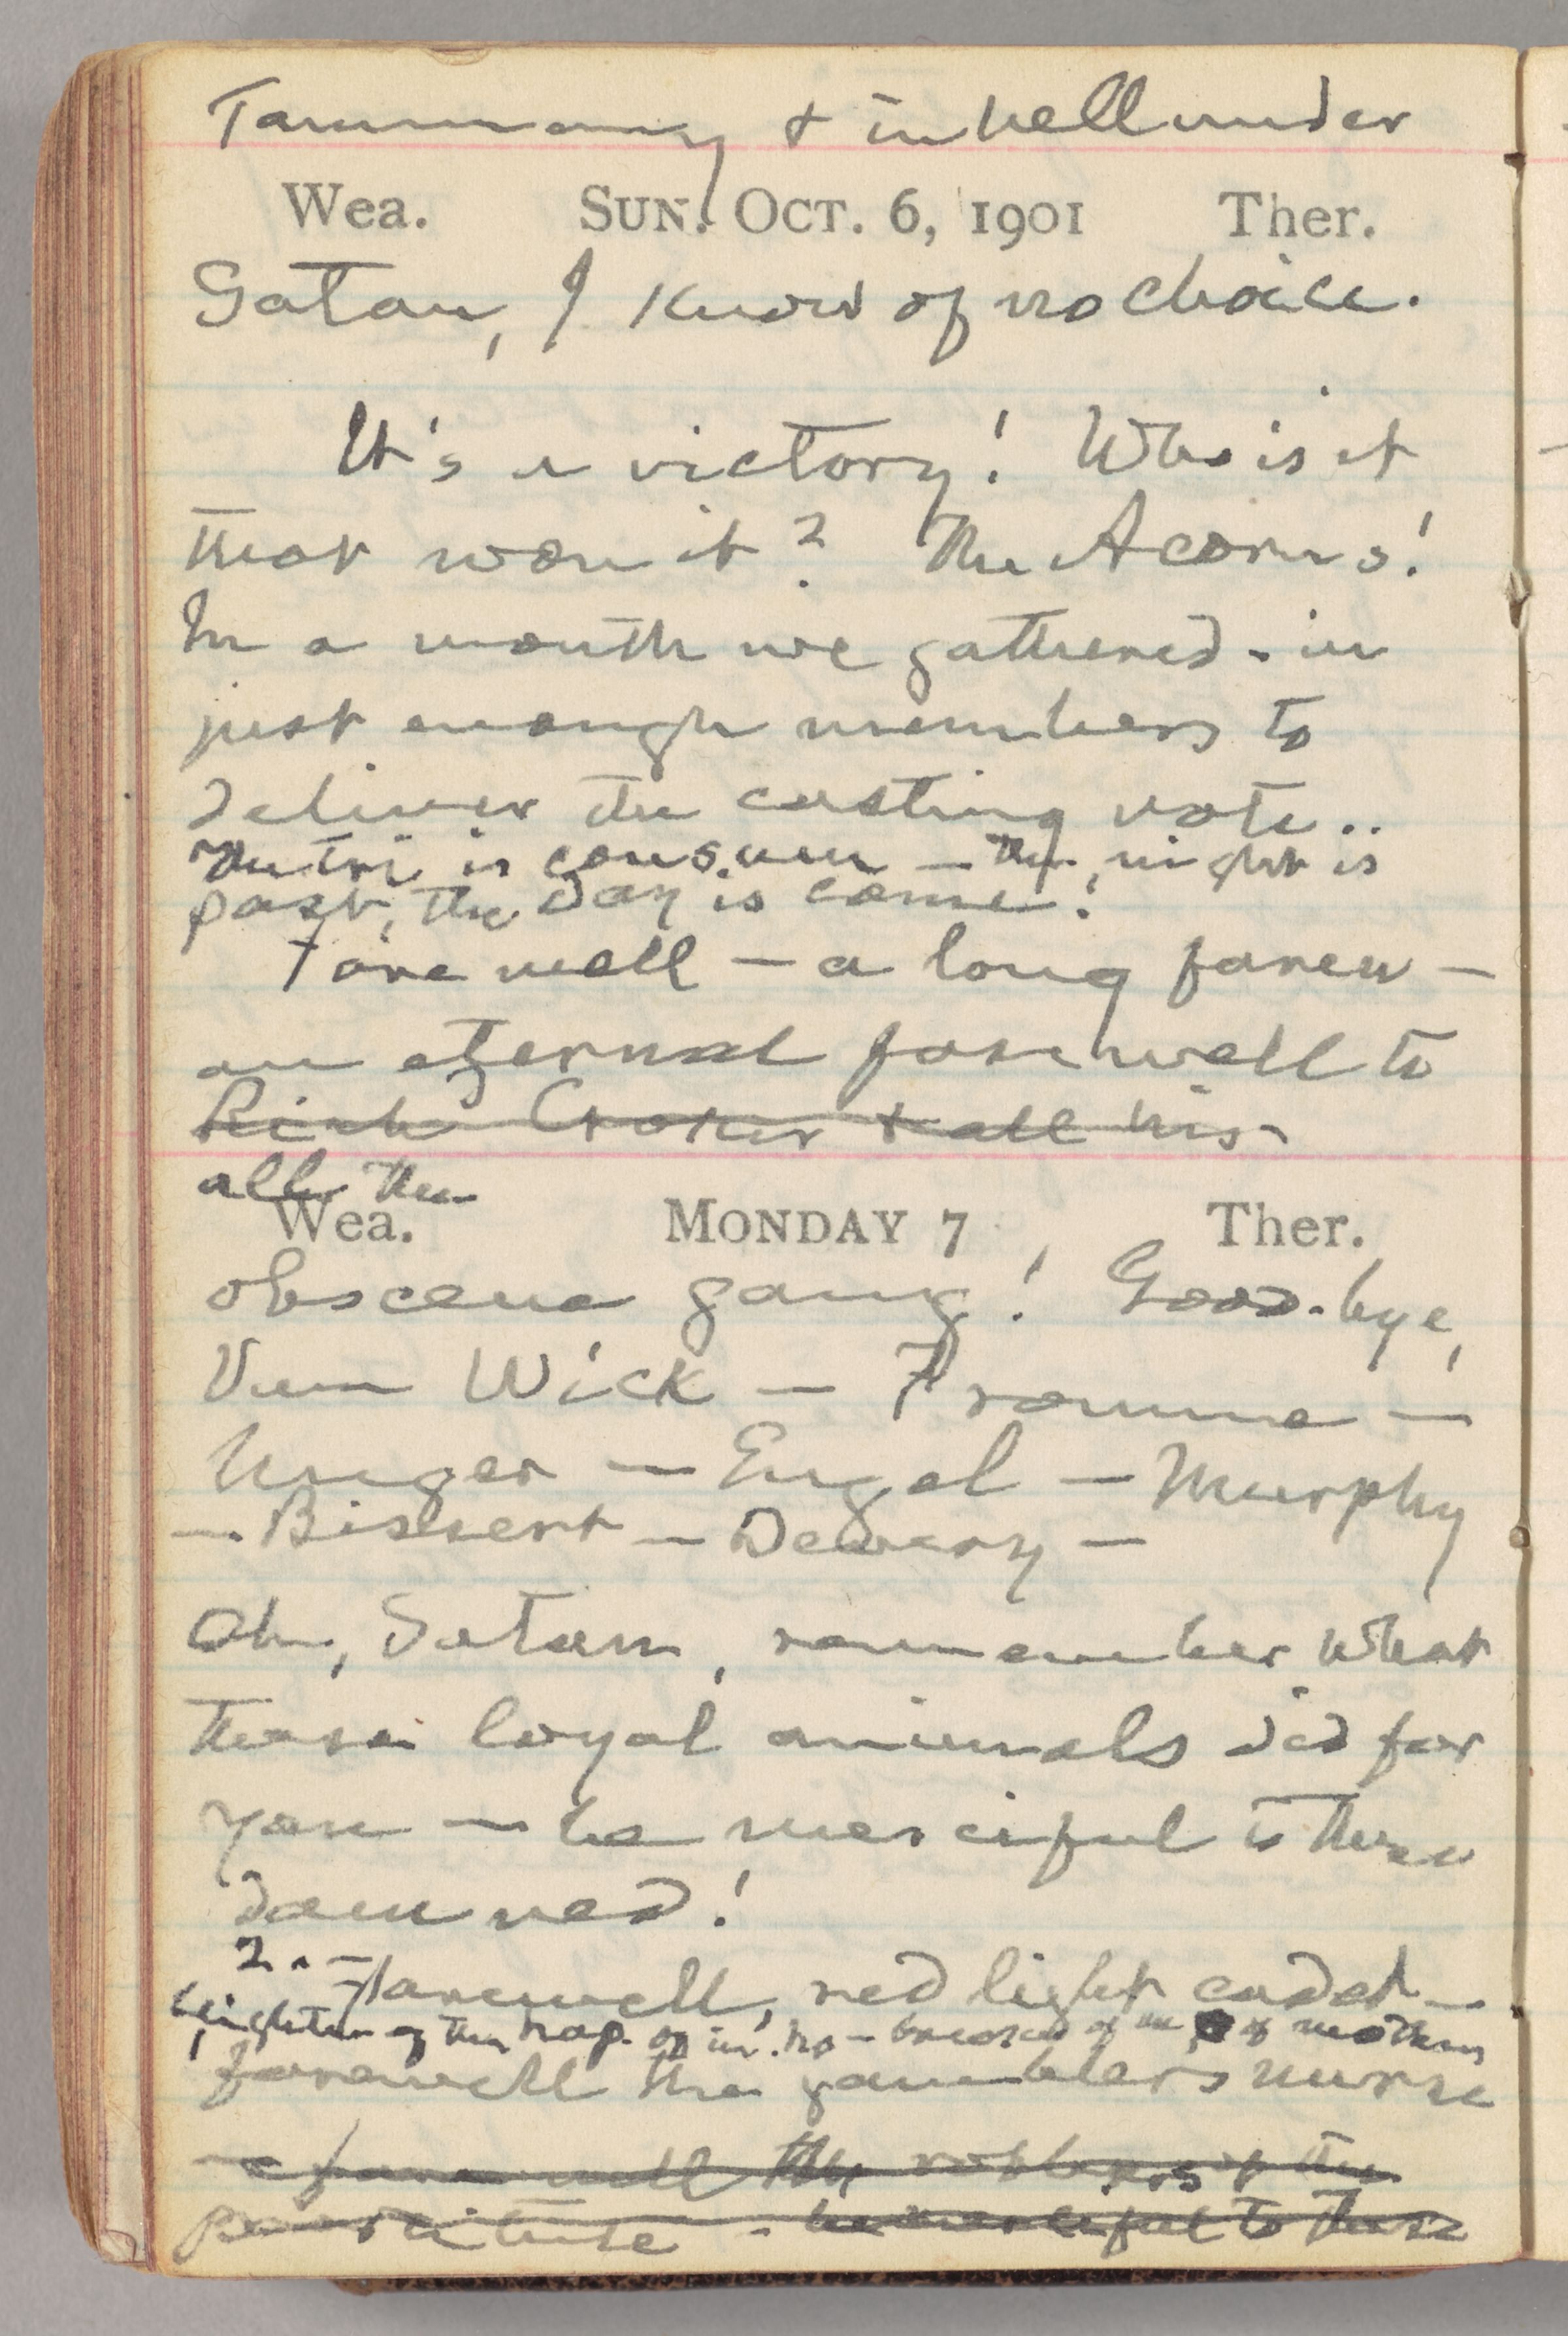 Tammany & in hell under
Wea. SUN. OCT. 6, 1901 Ther.
Satan, I know of no choice.
It's a victory! Who is it
that won it? The Acorns!
In a month we gathered-in
just enough members to
deliver the casting vote..
The is — the night is
past, the day is come!
Farewell — a long farew —
an eternal farewell to
Rich Croker & all his
all the
Wea. MONDAY 7 Ther.
obscene gang! Good-bye,
Van Wick — Fromme —
Unger — Engel — Murphy
— Bissert — Devery —
Oh, Satan, remember what
these loyal animals did for
you — be merciful to these
damned!
2. — Farewell, red light cadet —
blighter of the hap. of in. ho — of mothers
farewell the gamblers nurse
— farewell the robbers of the
prostitute - be merciful to these